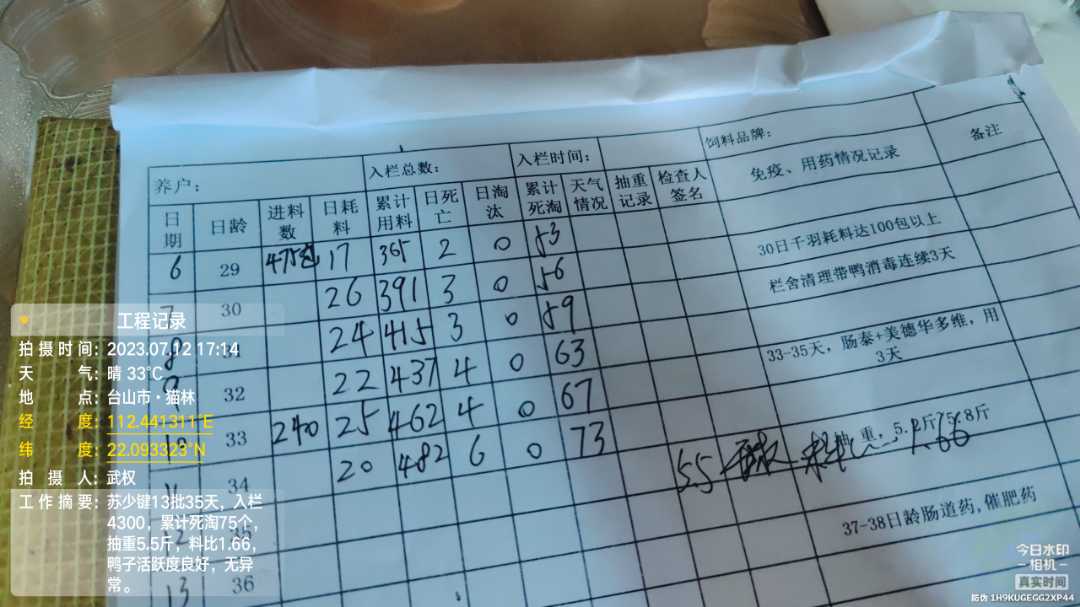 养户： 入栏总数： 入栏时间： 饲料品牌：
日期 日龄 进料数 日耗料 累计用料 日死亡 日淘汰 累计死淘 天气情况 抽重记录 检查人签名 免疫、用药情况记录 备注
6 29 475包 17 365 2 0 53
7 30 26 391 3 0 56 30日千羽耗料达100包以上
8 24 415 3 0 59 栏舍清理带鸭消毒连续3天
9 32 22 437 4 0 63
10 33 240 25 462 4 0 67 33-35天，肠泰+美德华多维，用3天
34 20 482 6 0 73
5.5 料 1.66
5.8斤
36 37-38日龄肠道药，催肥药
13
工程记录
拍摄时间：2023.07.12 17:14
天气：晴 33℃
地点：台山市·猫林
经度：112.441311°E
纬度：22.093323°N
拍摄人：武权
工作摘要：苏少键13批35天，入栏
4300，累计死淘75个，
抽重5.5斤，料比1.66，
鸭子活跃度良好，无异
常。
今日水印
相机
真实时间
防伪 1H9KUGEGG2XP44